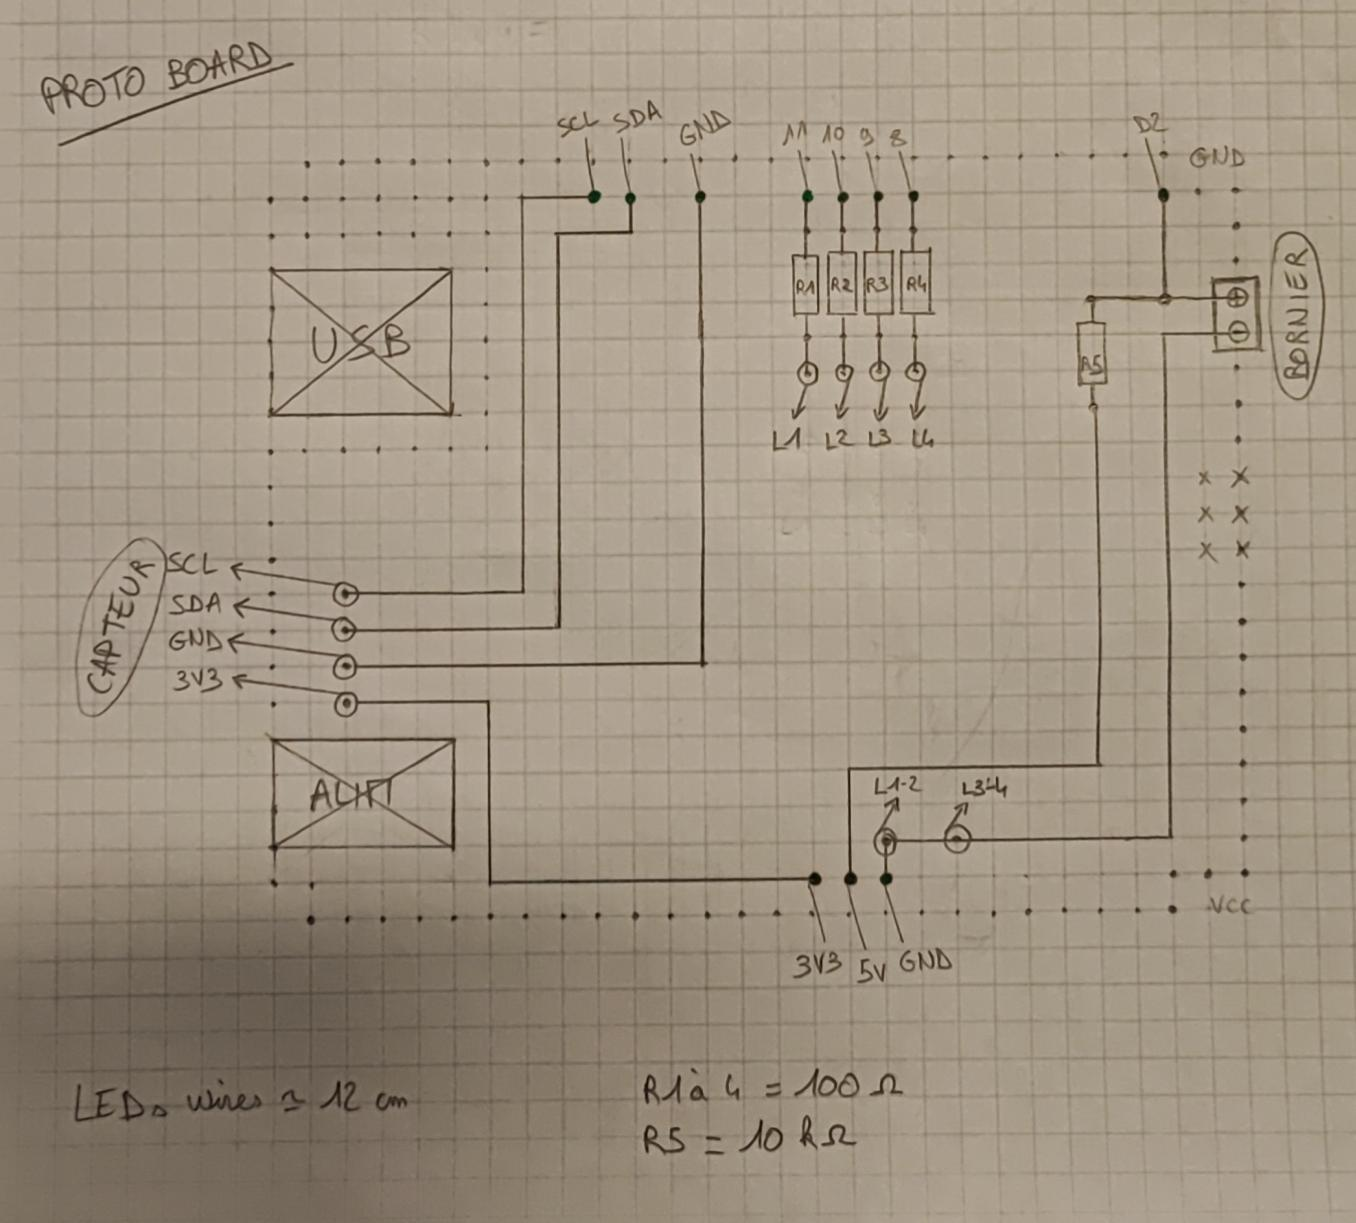 PROTO BOARD
SCL SDA GND 11 10 9 8 D2
GND
R1 R2 R3 R4
BORNIER
USB
R5
L1 L2 L3 L4
CAPTEUR
SCL
SDA
GND
3V3
ALIM
L1-2 L3-4
VCC
3V3 5V GND
LEDs wires ≃ 12 cm
R1 à 4 = 100 Ω
R5 = 10 kΩ